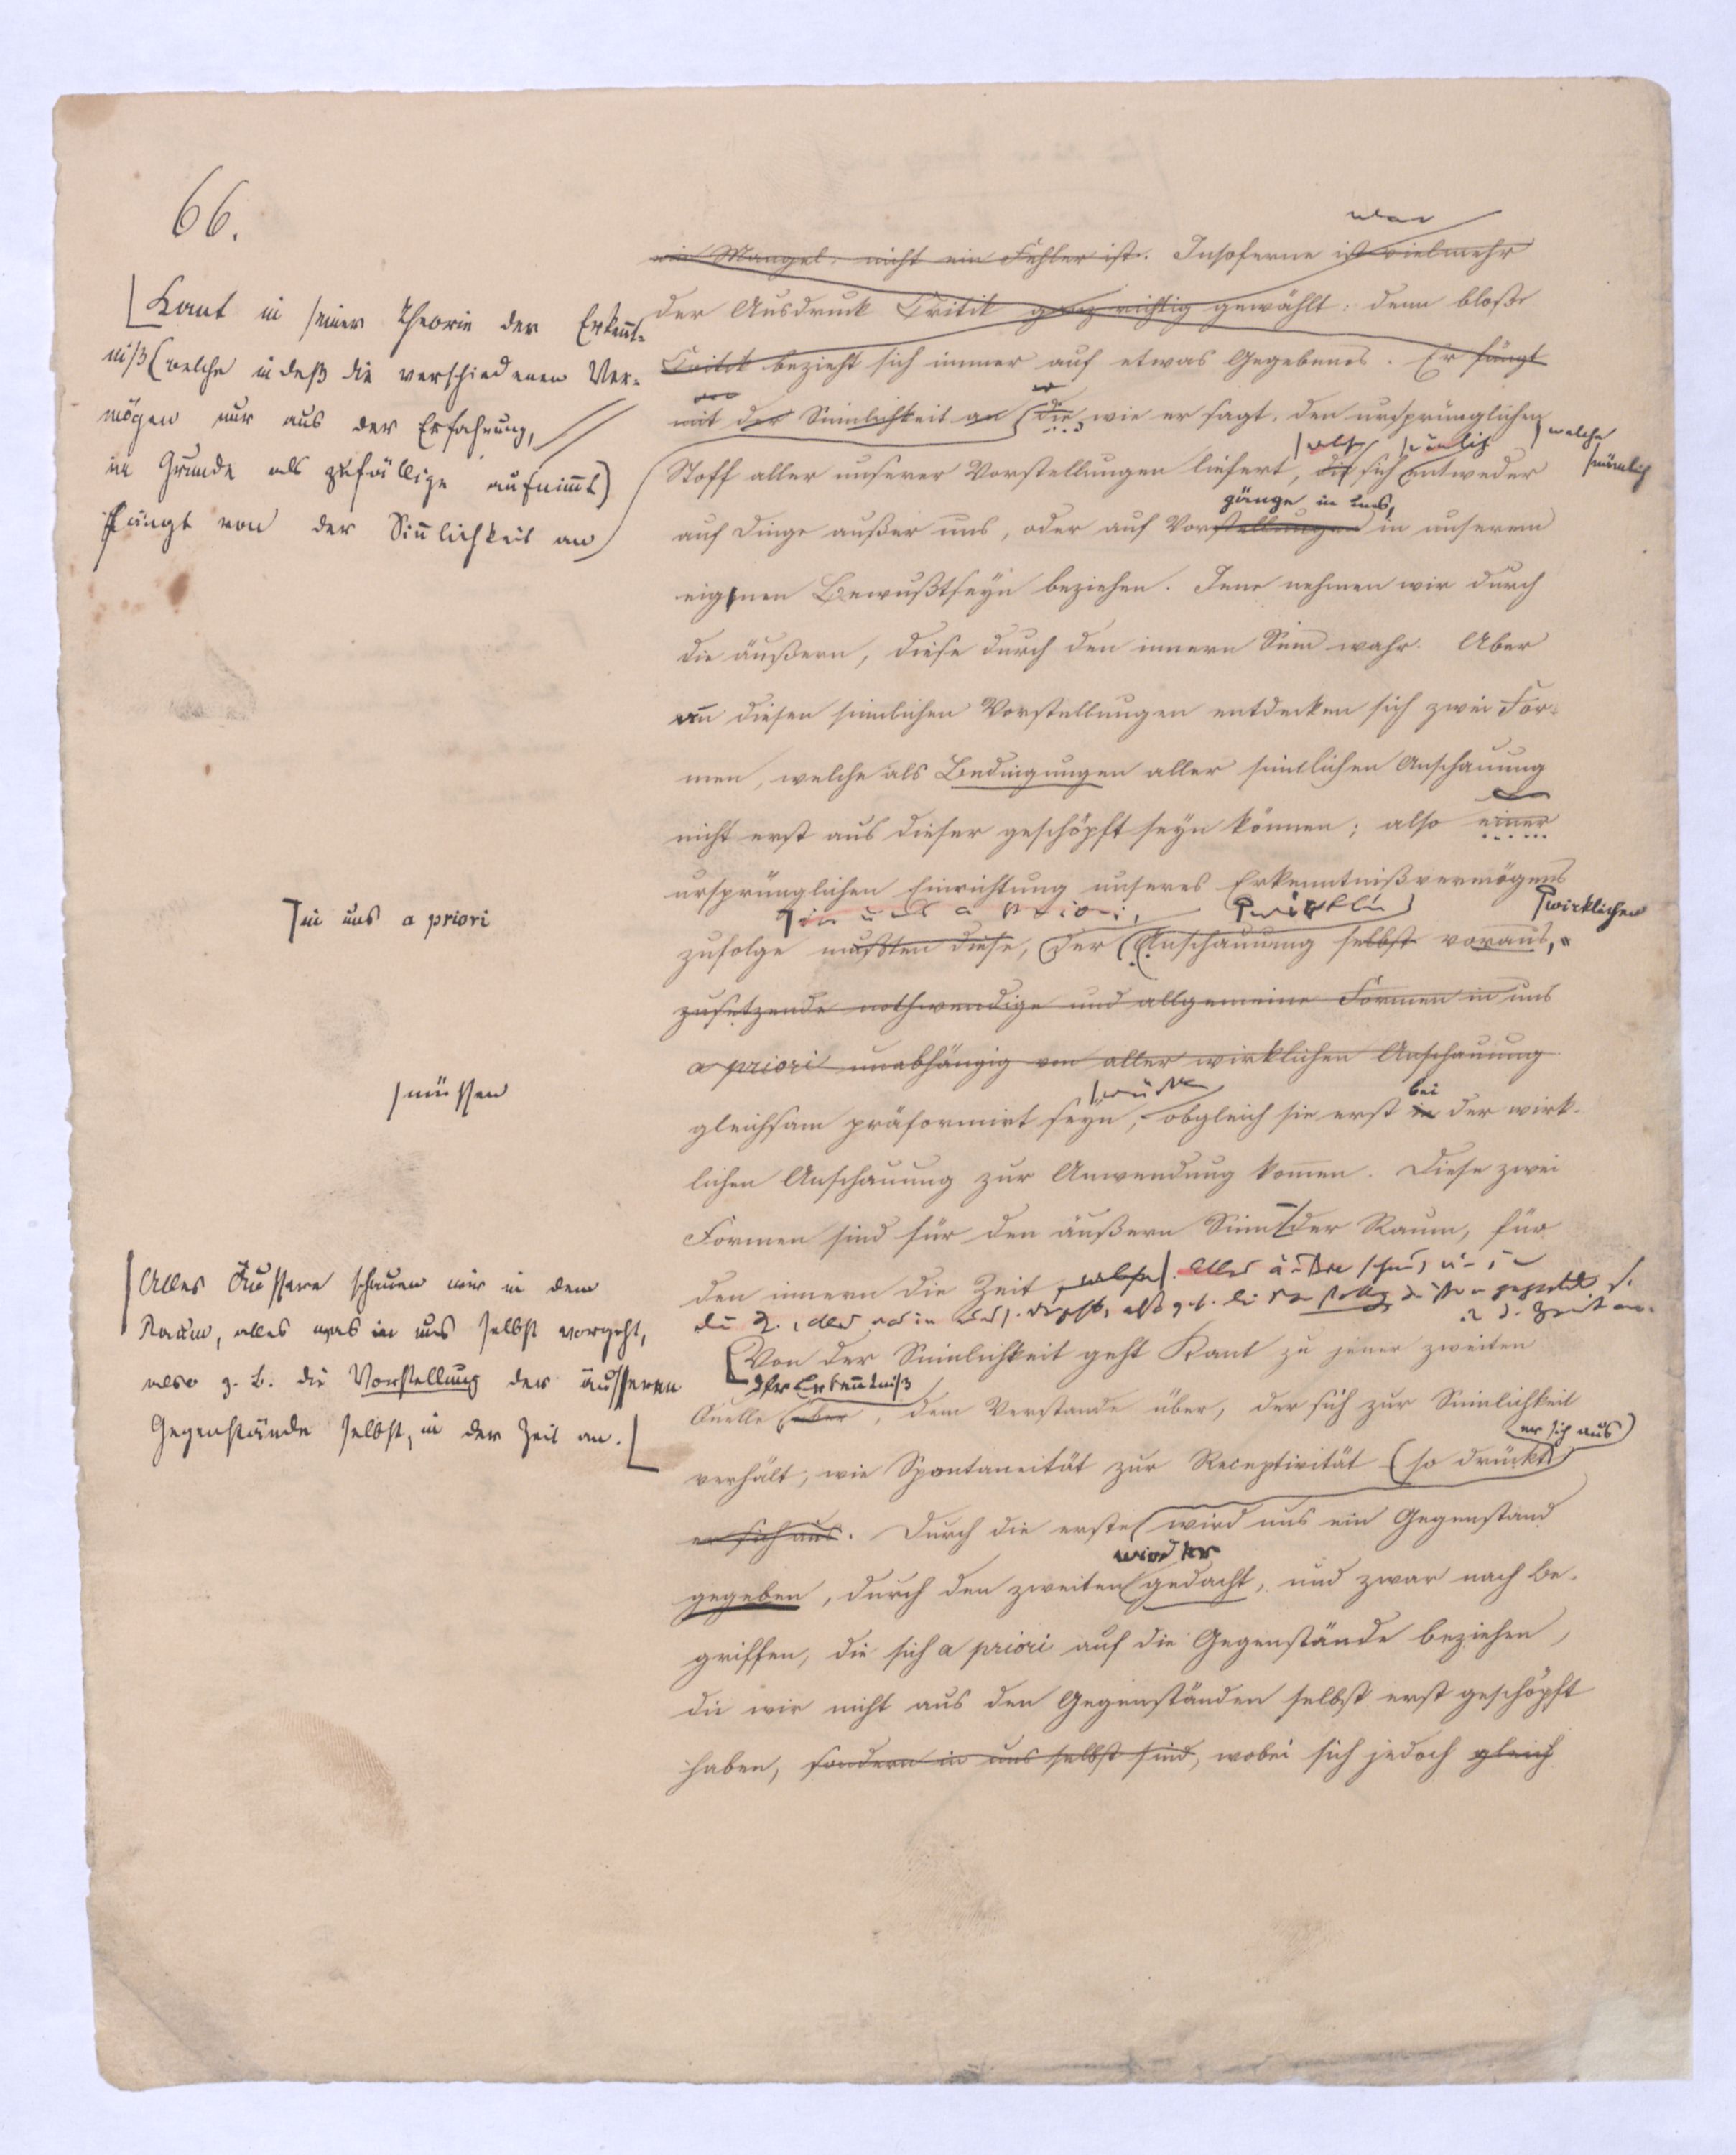 66.
Kant in seiner Theorie der Erkennt-
niß (welche indeß die verschiedenen Ver-
mögen nur aus der Erfahrung,
im Grunde als zufällige aufnimmt)
fängt von der Sinnlichkeit an
in uns a priori
müssen
Alles Äussere schauen wir in dem
Raum, alles was in uns selbst vorgeht,
also z. B. die Vorstellung der äusseren
Gegenstände selbst, in der Zeit an.
war
ein Mangel, nicht ein Fehler ist. Insoferne ist vielmehr
der Ausdruck Critik ganz richtig gewählt: denn bloße
Critik bezieht sich immer auf etwas Gegebenes. Er fängt
mit der Sinnlichkeit an die, wie er sagt, den ursprünglichen
welche
nämlich
Stoff aller unserer Vorstellungen liefert, die sich entweder
gänge in uns,
auf Dinge außer uns, oder auf Vorstellungen in unserem
eignen Bewußtseyn beziehen. Jene nehmen wir durch
die äußern, diese durch den innern Sinn wahr. Aber
an diesen sinnlichen Vorstellungen entdecken sich zwei For-
men, welche als Bedingungen aller sinnlichen Anschauung
nicht erst aus dieser geschöpft seyn können; also einer
ursprünglichen Einrichtung unseres Erkenntnißvermögens
in uns a priori,
wirklichen
zufolge mußten diese, der Anschauung selbst voraus,
zusetzende nothwendige und allgemeine Formen in uns
a priori unabhängig von aller wirklichen Anschauung
bei
gleichsam präformirt seyn, obgleich sie erst in der wirk-
lichen Anschauung zur Anwendung kommen. Diese zwei
Formen sind für den äußern Sinn der Raum, für
den innern die Zeit
Von der Sinnlichkeit geht Kant zu jener zweiten
der Erkenntniß
Quelle über, dem Verstande über, der sich zur Sinnlichkeit
er sich aus)
verhält, wie Spontaneität zur Receptivität (so drückt
er sich aus. Durch die erste wird uns ein Gegenstand
wird er
gegeben, durch den zweiten gedacht, und zwar nach Be-
griffen, die sich a priori auf die Gegenstände beziehen,
die wir nicht aus den Gegenständen selbst erst geschöpft
haben, sondern in uns selbst sind, wobei sich jedoch gleich